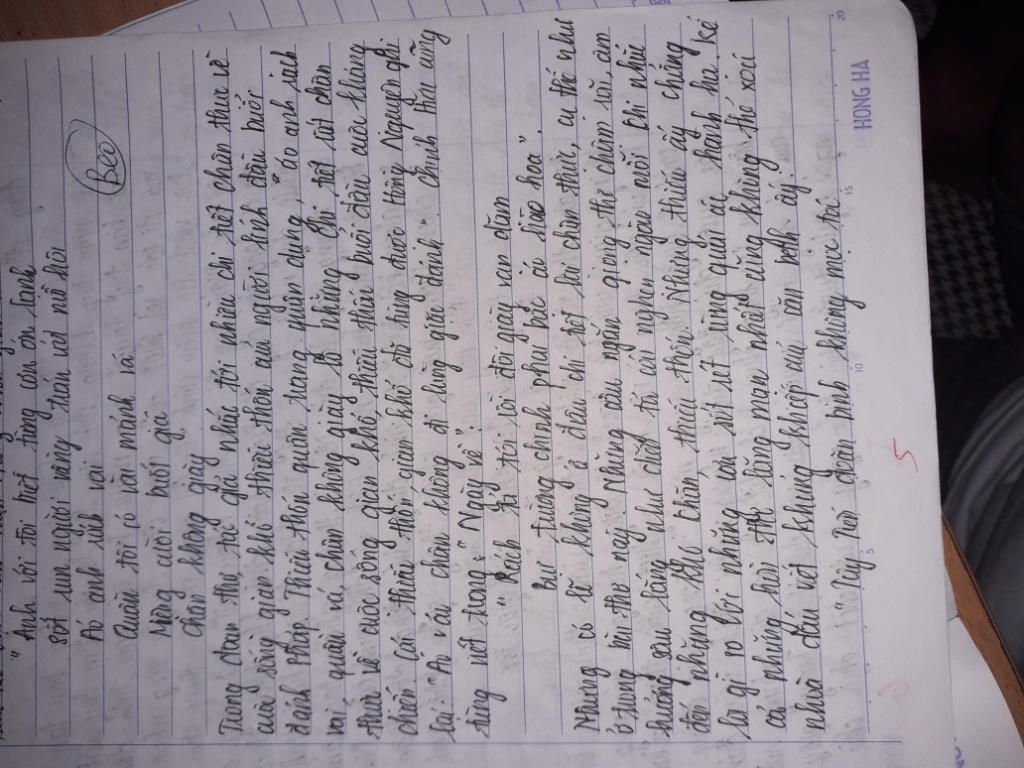 "Anh với tôi biết từng cơn ớn lạnh
sốt run người vừng trán ướt mồ hôi
Áo anh rách vai
Quần tôi có vài mảnh vá
Miệng cười buốt giá
Chân không giày
Beo
Trong đoạn thơ, tác giả nhắc tới nhiều chi tiết chân thực về
cuộc sống gian khổ thiếu thốn của người lính đầu buổi
đánh Pháp. Thiếu thốn quân trang quân dụng, "áo anh rách
vai, quần vá, chân không giày" là những chi tiết rất chân
thực về cuộc sống gian khổ, thiếu thốn buổi đầu của kháng
chiến. Cái thiếu thốn gian khổ đó từng được Hồng Nguyên ghi
lại: "Áo vải chân không đi lùng giặc đánh". Chính Hữu cũng
từng viết trong "Ngày về":
"Rách tả tơi rồi đôi giày vạn dặm
Bụi trường chinh phai bạc áo hào hoa".
Nhưng có lẽ không ở đâu chi tiết lại chân thực, cụ thể như
ở trong bài thơ này. Những câu ngắn, giọng thơ chậm rãi, âm
hưởng sâu lắng như chất tả cái nghẹn ngào mỗi khi nhớ
đến những khó khăn thiếu thốn. Những thiếu ấy chẳng
là gì so với những cơn sốt rét rừng quái ác hành hạ. Kẻ
cả những hồi lãng mạn nhất cũng không thể xoá
nhoà dấu vết khủng khiếp của căn bệnh ấy.
"Tây Tiến đoàn binh không mọc tóc
5
HONG HA
5
10
15
20